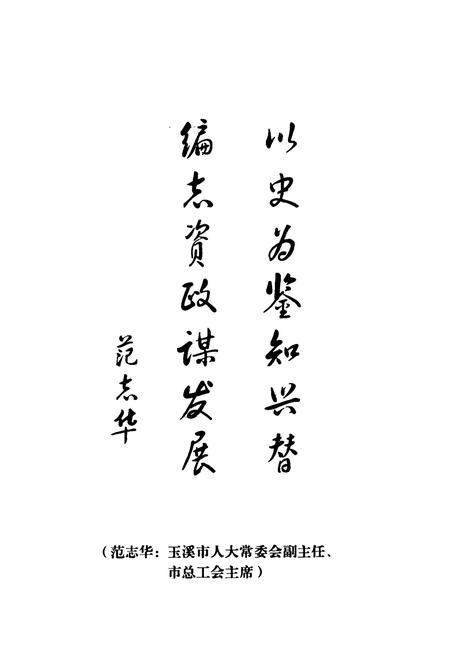 以史为鉴知兴替
编志資政谋发展
范志华
（范志华：玉溪市人大常委会副主任、
市总工会主席）